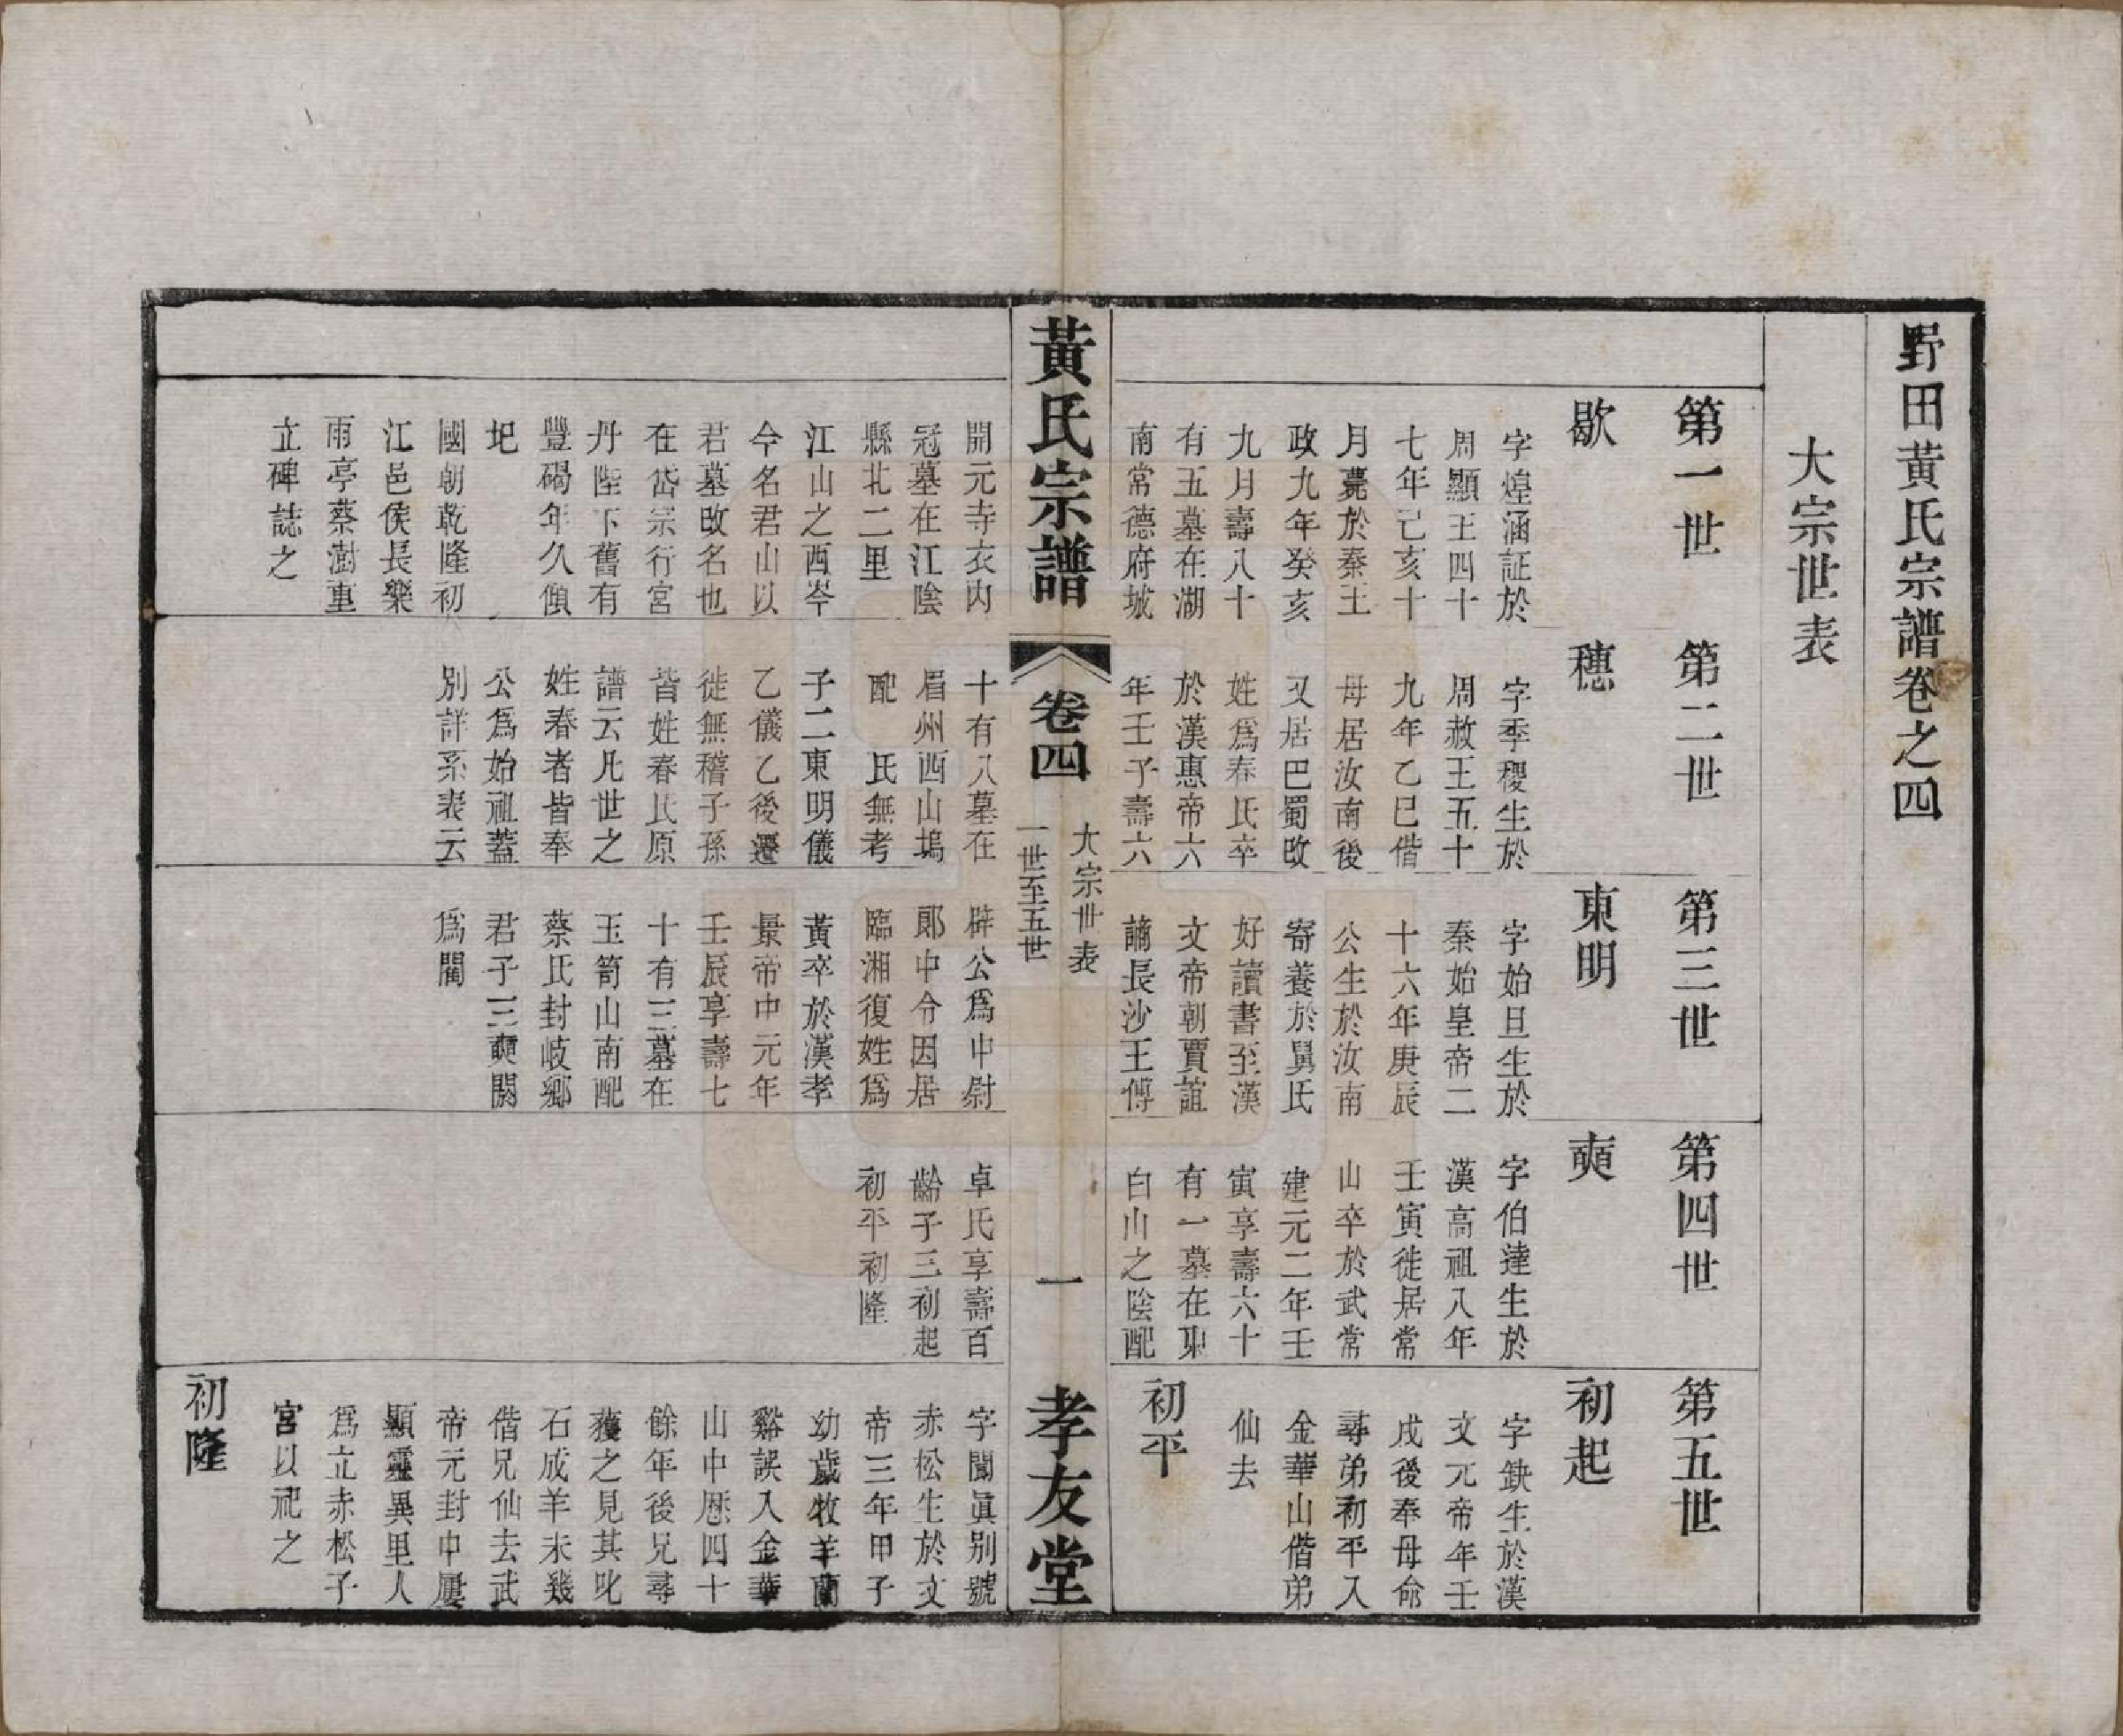 野田黃氏宗譜卷之四
大宗世表
第一世
歇
字煌涵証於
周顯王四十
七年己亥十
月薨於秦王
政九年癸亥
九月壽八十
有五墓在湖
南常德府城
開元寺衣內
冠墓在江陰
縣北二里
江山之西岑
今名君山以
君墓改名也
在岱宗行宮
丹陛下舊有
豐碣年久傾
圯
國朝乾隆初
江邑侯長樂
雨亭蔡澍重
立碑誌之
第二世
穗
字季稷生於
周赧王五十
九年乙巳偕
母居汝南後
又居巴蜀改
姓爲春氏卒
於漢惠帝六
年壬子壽六
十有八墓在
眉州西山塢
配 氏無考
子二東明儀
乙儀乙後遷
徙無稽子孫
皆姓春氏原
譜云凡世之
姓春者皆奉
公爲始祖蓋
別詳系表云
第三世
東明
字始旦生於
秦始皇帝二
十六年庚辰
公生於汝南
寄養於舅氏
好讀書至漢
文帝朝賈誼
謫長沙王傅
辟公爲中尉
郞中令因居
臨湘復姓爲
黃卒於漢孝
景帝中元年
壬辰享壽七
十有三墓在
玉笥山南配
蔡氏封岐鄉
君子三奭闕
爲閣
第四世
奭
字伯達生於
漢高祖八年
壬寅徙居常
山卒於武常
建元二年壬
寅享壽六十
有一墓在東
白山之陰配
卓氏享壽百
齡子三初起
初平初隆
第五世
初起
字鈌生於漢
文元帝年壬
戌後奉母命
尋弟初平入
金華山偕弟
仙去
初平
字聞眞别號
赤松生於文
帝三年甲子
幼歲牧羊蘭
谿誤入金華
山中厯四十
餘年後兄尋
獲之見其叱
石成羊未幾
偕兄仙去武
帝元封中屢
顯靈異里人
爲立赤松子
宮以祀之
初隆
黃氏宗譜
卷四
大宗世表
一世至五世
一
孝友堂